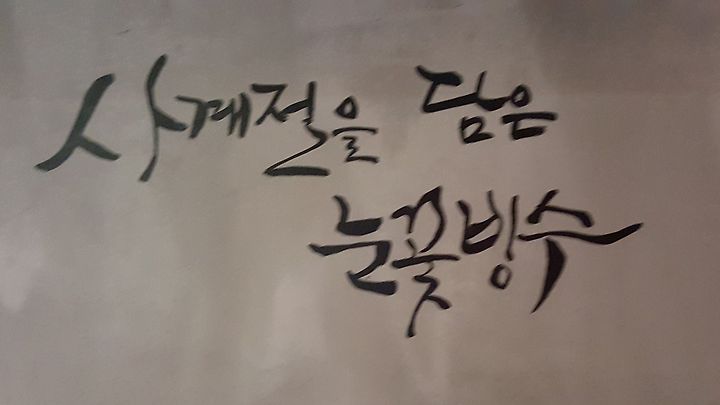 사계절을 담은
눈꽃빙수